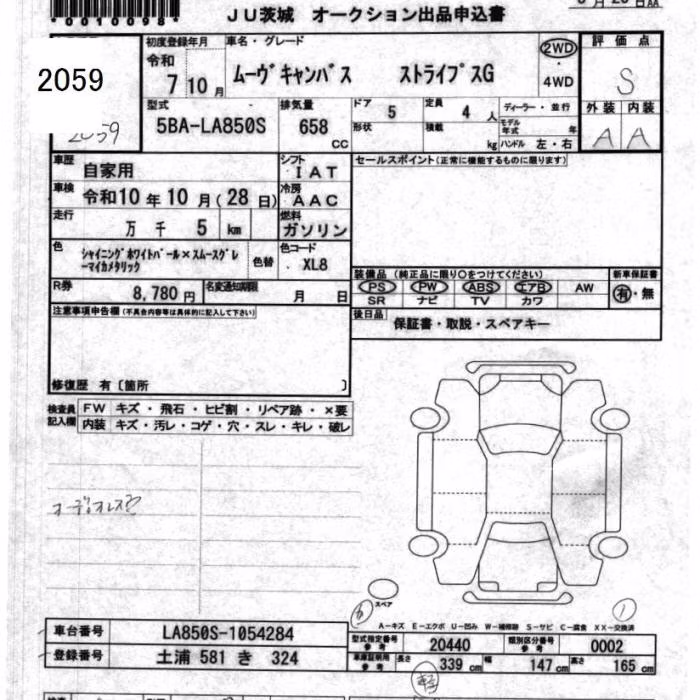 *0010098*
JU茨城 オークション出品申込書
2059
2059
初度登録年月
令和
7 10 月
車名・グレード
ムーヴキャンバス ストライプスG
2WD
・
4WD
評価点
S
外装 内装
A A
型式
5BA-LA850S
排気量
658 CC
ドア
5
定員
4 人
形状
積載
kg
ディーラー・並行
モデル年式 年
ハンドル 左・右
車歴
自家用
シフト
IAT
セールスポイント(正常に機能するものに限ります)
車検
令和10年10月(28日)
冷房
AAC
走行
万 千 5 km
燃料
ガソリン
色
シャイニングホワイトパール×スムースグレ
ーマイカメタリック
色替
色コード
XL8
R券
8,780 円
名変通知期限
月 日
装備品(純正品に限り○をつけてください)
PS PW ABS エアB AW
SR ナビ TV カワ
新車保証書
有・無
後日品
保証書・取説・スペアキー
注意事項申告欄(不具合内容等は具体的に記入して下さい)
修復歴 有〔箇所 〕
検査員
記入欄
FW キズ・飛石・ヒビ割・リペア跡・×要
内装 キズ・汚レ・コゲ・穴・スレ・キレ・破レ
オーディオレス
スペア
1
A-キズ E-エクボ U-凹み W-補修跡 S-サビ C-腐食 XX-交換済
車台番号
LA850S-1054284
登録番号
土浦 581 き 324
型式指定番号
参考
20440
類別区分番号
参考
0002
車庫証明用
参考
長さ 339 cm 幅 147 cm 高さ 165 cm
軽